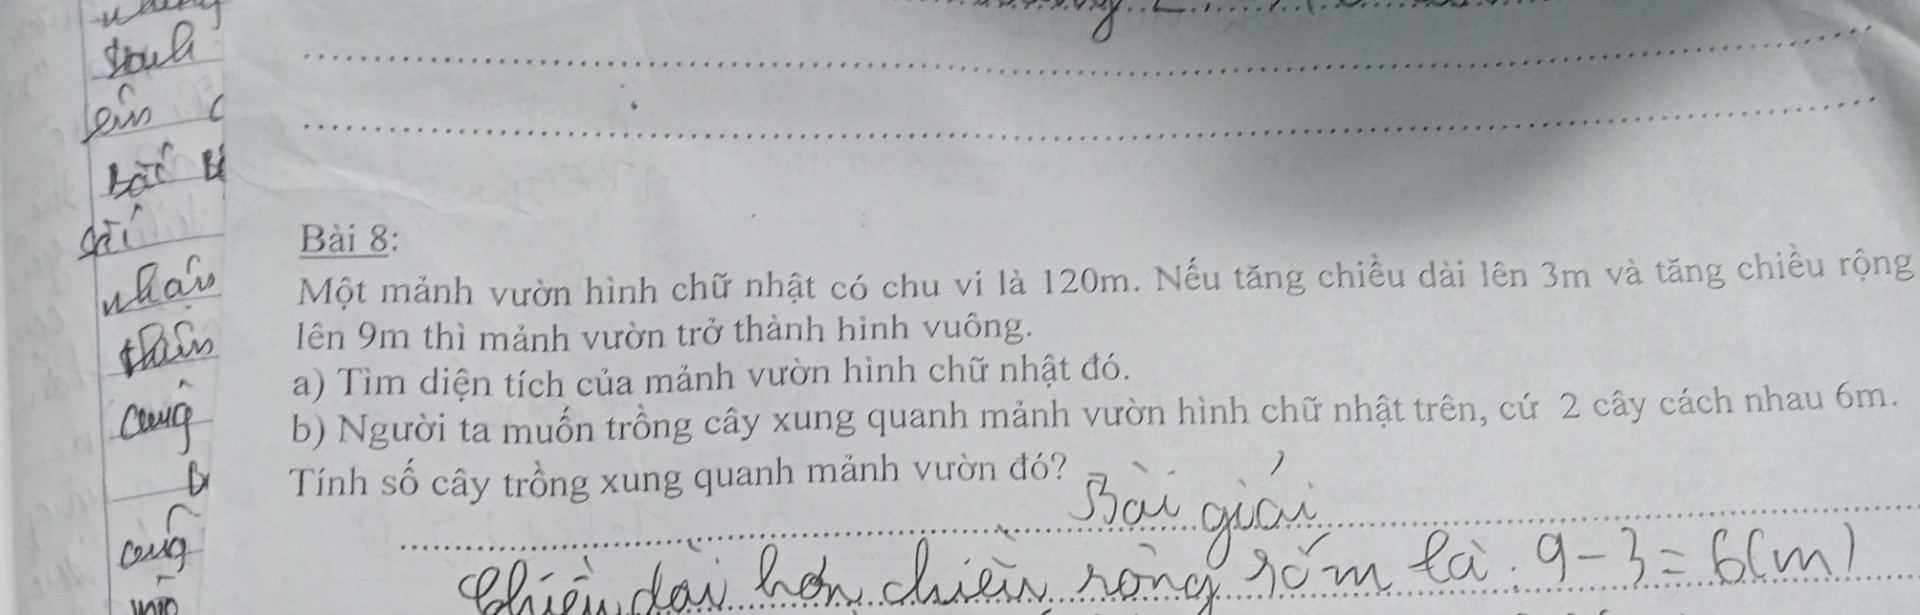 Bài 8:
Một mảnh vườn hình chữ nhật có chu vi là 120m. Nếu tăng chiều dài lên 3m và tăng chiều rộng
lên 9m thì mảnh vườn trở thành hình vuông.
a) Tìm diện tích của mảnh vườn hình chữ nhật đó.
b) Người ta muốn trồng cây xung quanh mảnh vườn hình chữ nhật trên, cứ 2 cây cách nhau 6m.
Tính số cây trồng xung quanh mảnh vườn đó?
Bài giải
Chiều dài hơn chiều rộng số m là: 9-3=6(m)